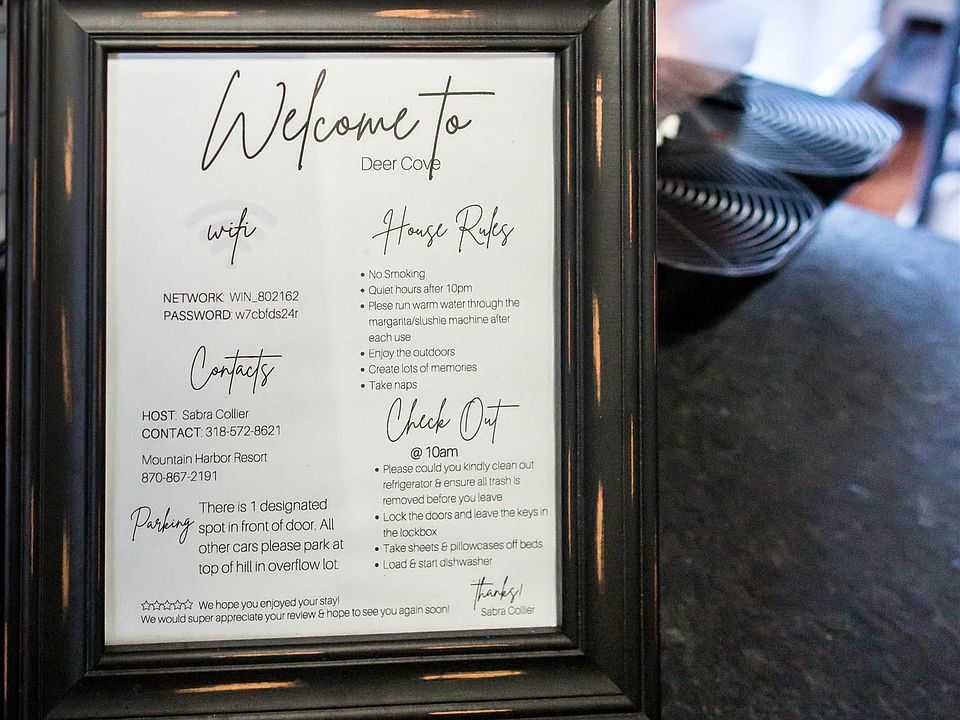 Welcome to
Deer Cove
wifi
NETWORK: WIN_802162
PASSWORD: w7cbfds24r
Contacts
HOST: Sabra Collier
CONTACT: 318-572-8621
Mountain Harbor Resort
870-867-2191
Parking
There is 1 designated
spot in front of door. All
other cars please park at
top of hill in overflow lot.
House Rules
• No Smoking
• Quiet hours after 10pm
• Plese run warm water through the
margarita/slushie machine after
each use
• Enjoy the outdoors
• Create lots of memories
• Take naps
Check Out
@ 10am
• Please could you kindly clean out
refrigerator & ensure all trash is
removed before you leave
• Lock the doors and leave the keys in
the lockbox
• Take sheets & pillowcases off beds
• Load & start dishwasher
thanks!
Sabra Collier
We hope you enjoyed your stay!
We would super appreciate your review & hope to see you again soon!